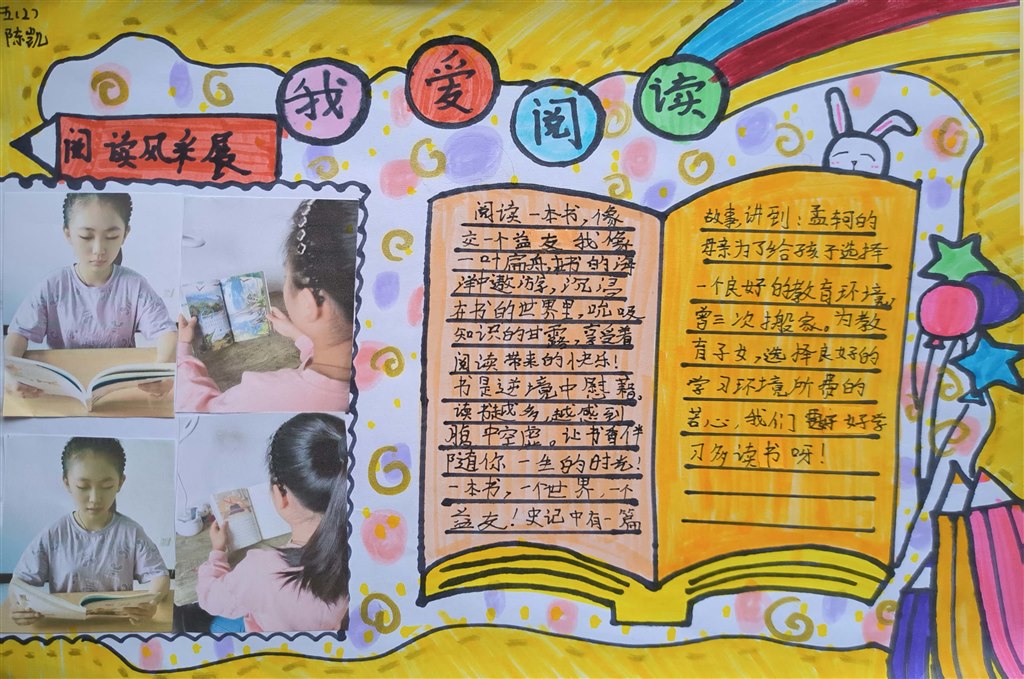 五(2)
陈凯
我爱阅读
阅读风采展
阅读一本书,像
交一个益友,我像
一叶扁舟,在书的海
洋中遨游,沉浸
在书的世界里,吮吸
知识的甘露,享受着
阅读带来的快乐!
书是逆境中慰藉,
读越多,越感到
腹中空虚。让书香伴
随你一生的时光!
一本书,一个世界,一个
益友!史记中有一篇
故事讲到:孟轲的
母亲为了给孩子选择
一个良好的教育环境,
曾三次搬家。为教
育子女,选择良好的
学习环境所费的
苦心,我们要好好学
习多读书呀!